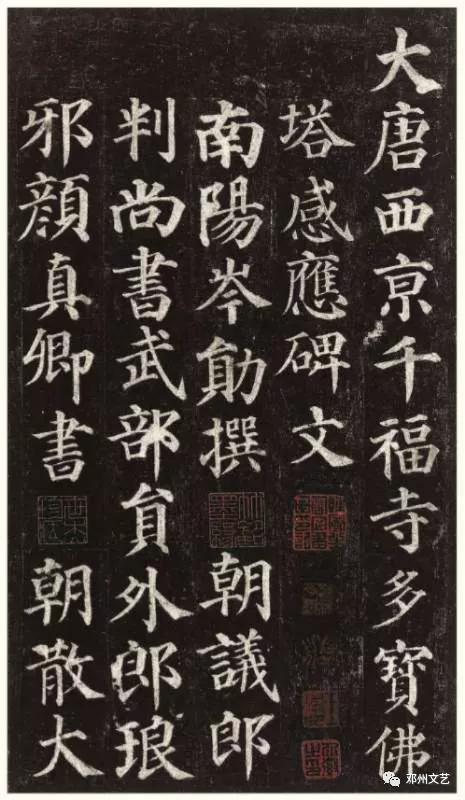 大唐西京千福寺多寳佛
塔感應碑文
南陽岑勛撰 朝議郎
判尚書武部貟外郎琅
邪顔真卿書 朝散大
邓州文艺